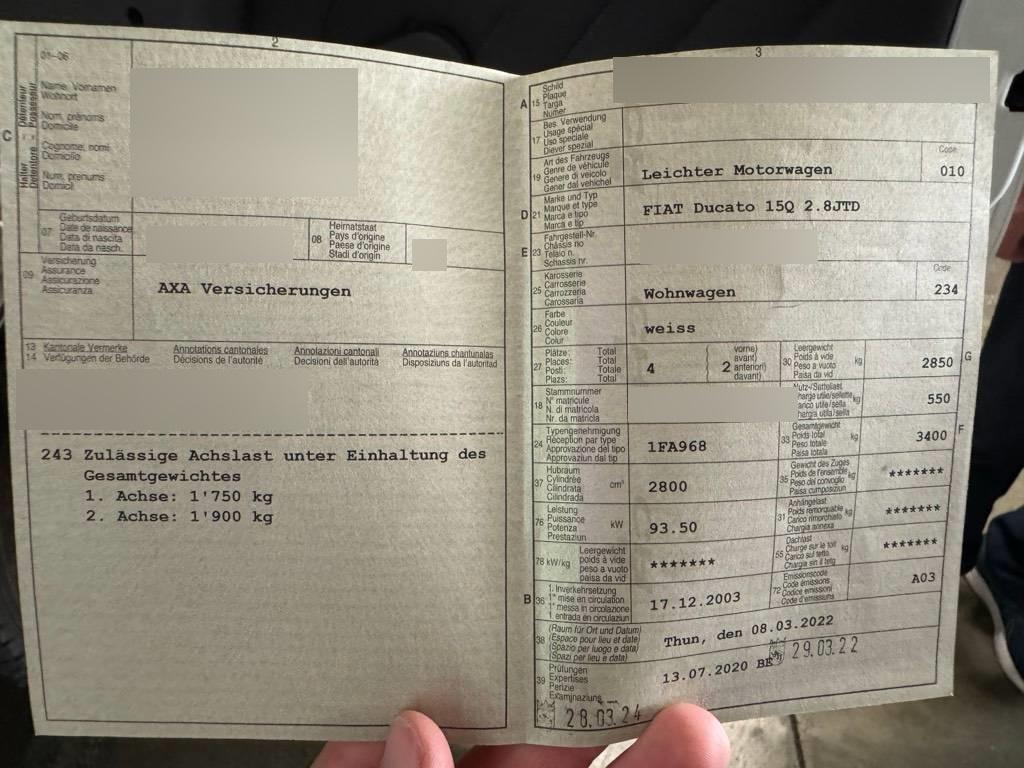 2
01–06
Name, Vornamen
Wohnort
Nom, prénoms
Domicile
Cognome, nomi
Domicilio
Num, prenums
Domicil
C
Halter Détenteur
Detentore Possessur
07
Geburtsdatum
Date de naissance
Data di nascita
Data da nasch.
08
Heimatstaat
Pays d'origine
Paese d'origine
Stadi d'origin
09
Versicherung
Assurance
Assicurazione
Assicuranza
AXA Versicherungen
13 Kantonale Vermerke
14 Verfügungen der Behörde
Annotations cantonales
Décisions de l'autorité
Annotazioni cantonali
Decisioni dell'autorità
Annotaziuns chantunalas
Disposiziuns da l'autoritad
243 Zulässige Achslast unter Einhaltung des
Gesamtgewichtes
1. Achse: 1'750 kg
2. Achse: 1'900 kg
3
A 15
Schild
Plaque
Targa
Numer
17
Bes. Verwendung
Usage spécial
Uso speciale
Diever spezial
19
Art des Fahrzeugs
Genre de véhicule
Genere di veicolo
Gener dal vehichel
Leichter Motorwagen
Code
010
D 21
Marke und Typ
Marque et type
Marca e tipo
Marca e tip
FIAT Ducato 15Q 2.8JTD
E 23
Fahrgestell-Nr.
Châssis no
Telaio n.
Schassis nr.
25
Karosserie
Carrosserie
Carrozzeria
Carossaria
Wohnwagen
Code
234
26
Farbe
Couleur
Colore
Colur
weiss
27
Plätze: Total
Places: Total
Posti: Totale
Plazs: Total
4
2
vorne)
avant)
anteriori)
davant)
30
Leergewicht
Poids à vide
Peso a vuoto
Paisa da vid
kg
2850
G
18
Stammnummer
N° matricule
N. di matricola
Nr. da matricla
Nutz-/Sattellast
kg
550
24
Typengenehmigung
Réception par type
Approvazione del tipo
Approvaziun dal tip
1FA968
33
Gesamtgewicht
Poids total
Peso totale
Paisa totala
kg
3400
F
37
Hubraum
Cylindrée
Cilindrata
Cilindrada
cm³
2800
35
Gewicht des Zuges
Poids de l'ensemble
Peso del convoglio
Paisa cumposiziun
kg
*******
76
Leistung
Puissance
Potenza
Prestaziun
kW
93.50
31
Anhängelast
Poids remorquable
Carico rimorchiato
Chargia annexa
kg
*******
78 kW/kg
Leergewicht
poids à vide
peso a vuoto
paisa da vid
*******
55
Dachlast
Charge sur le toit
Carico sul tetto
Chargia sin il tetg
kg
*******
B 36
1. Inverkehrsetzung
1re mise en circulation
1a messa in circolazione
1. entrada en circulaziun
17.12.2003
72
Emissionscode
Code émissions
Codice emissioni
Code d'emissiuns
A03
38
(Raum für Ort und Datum)
(Espace pour lieu et date)
(Spazio per luogo e data)
(Spazi per lieu e data)
Thun, den 08.03.2022
39
Prüfungen
Expertises
Perizie
Examinaziuns
13.07.2020 BE
29.03.22
28.03.24